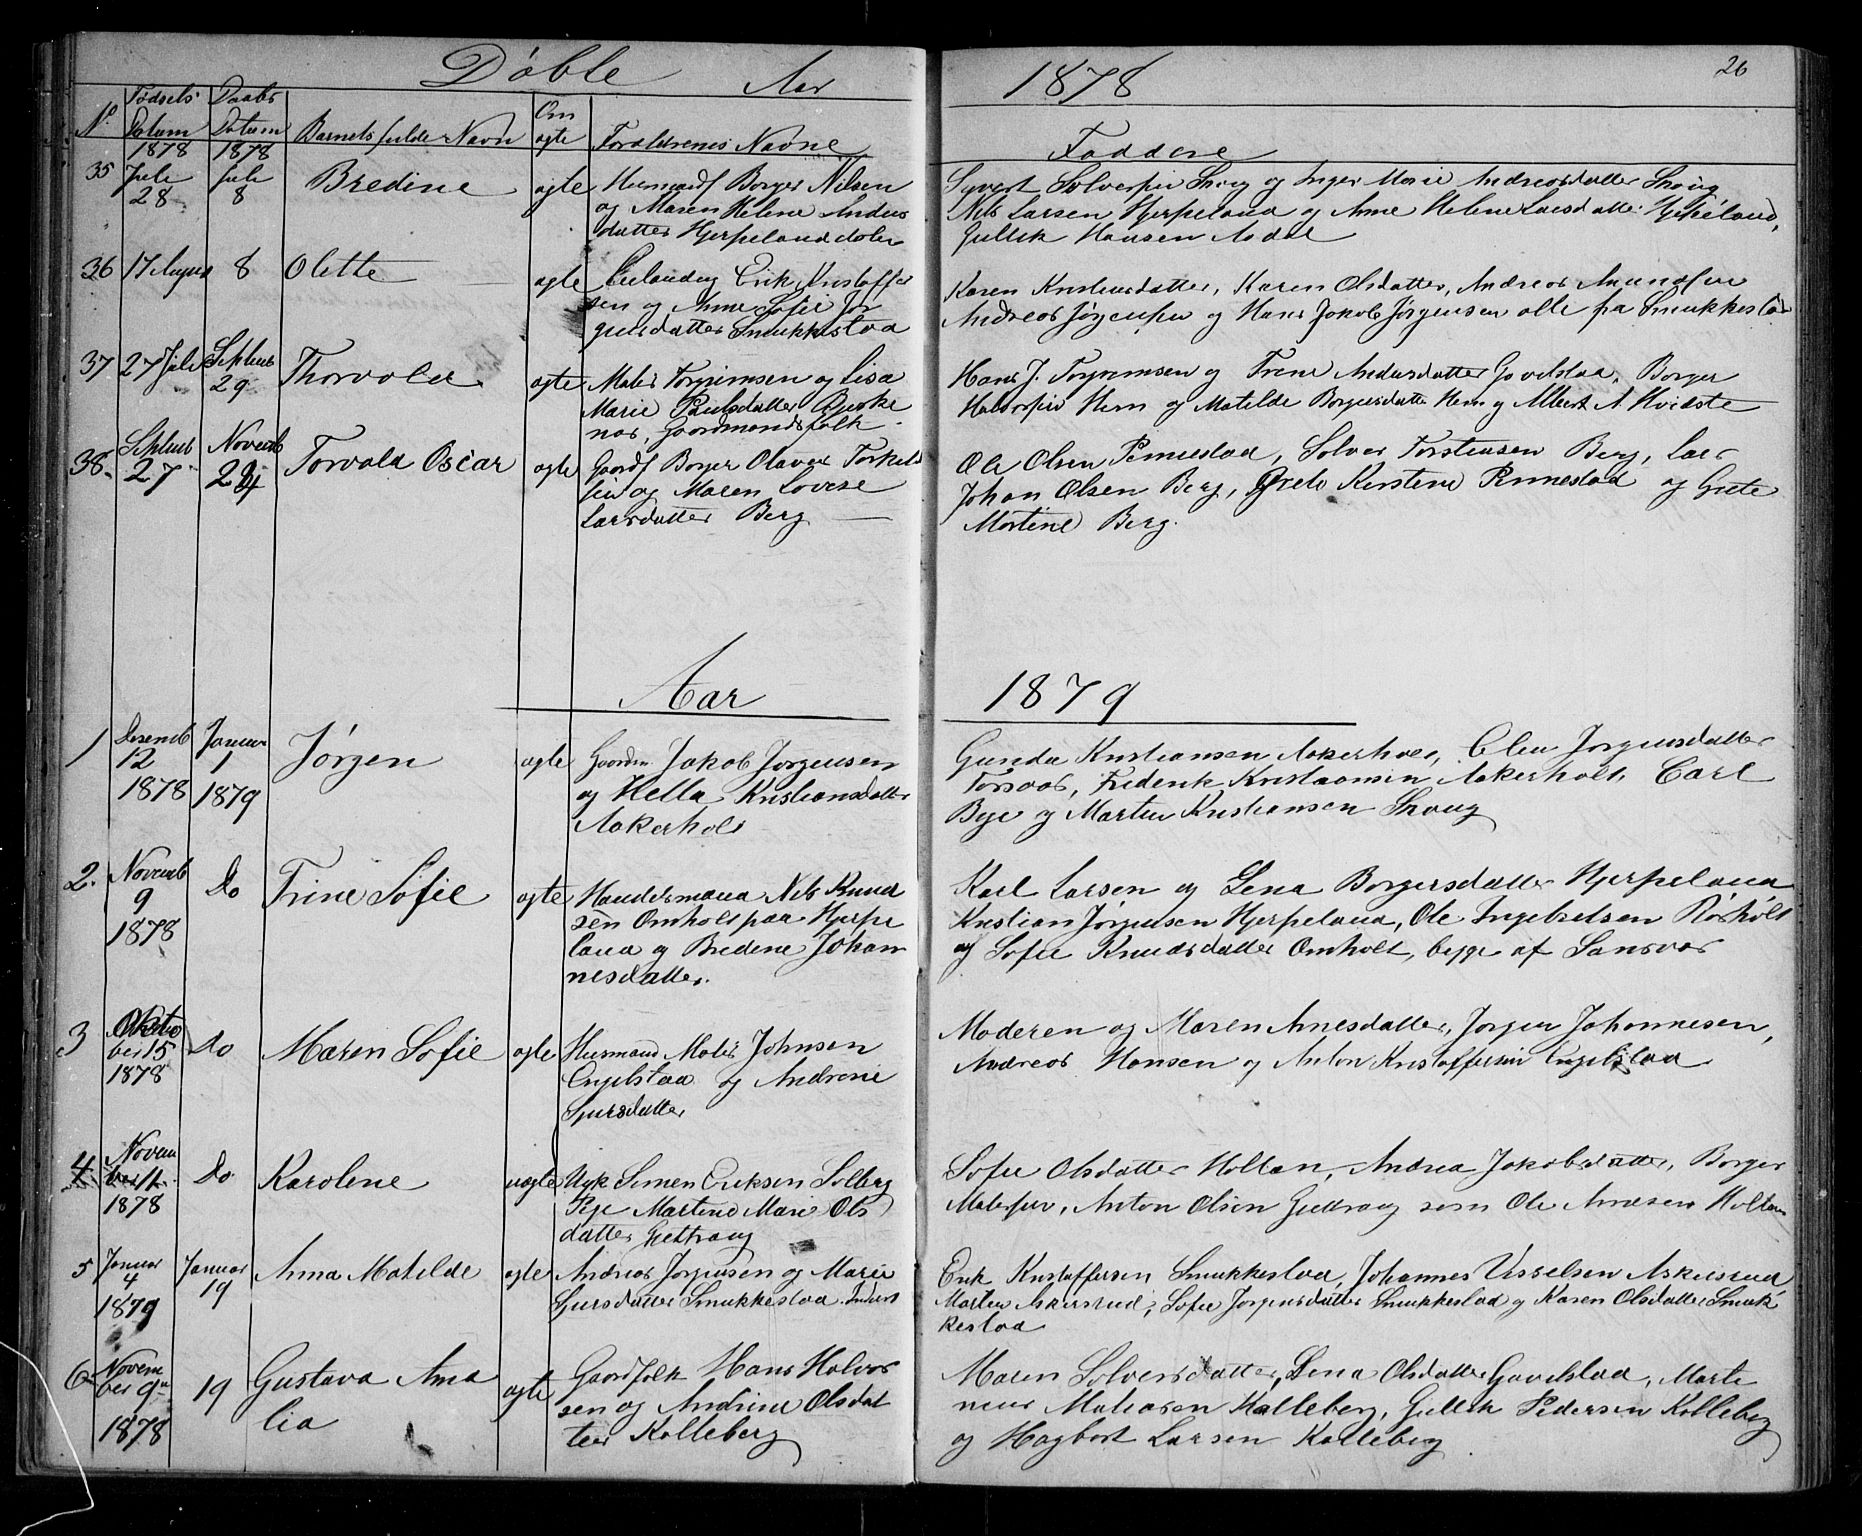 Døbte Aar 1878 26
No Fødsels Datum 1878 Daabs Datum 1878 Barnets fulde Navn Om ægte Forældrenes Navne Faddere
35 Juli 28 Juli 8 Bredine ægte Husmandf Borger Nilsen
og Maren Helene Anders
datter Hjerpeland
Syvert Solversen Skoug og Inger Marie Andreasdatter Skoug
Nils Larsen Hjerpeland og Anne Helene Larsdatter Hjerpeland,
Gullik Hansen
36 17 August 8 Olette ægte Erik Kristoffer
sen og Anne Sofie Jør
gensdatter Smukkestad
Karen Kristiansdatter, Karen Olsdatter, Andreas Amundsen
Andreas Jørgensen og Hans Jakob Jørgensen alle fra Smukkestad
37 27 Juli Septemb 29 Thorvald ægte Mates Torgrimsen og Lisa
Marie Paulsdatter
Gaardmandsfolk
Hans J. Torgrimsen og Trine Andersdatter Gavelstad, Borger
Halvorsen Hem og Matilde Borgersdatter Hem og Albert A. Hvidste
38 Septemb 27 Novemb 24 Torvald Oscar ægte Gaardf Borger Olaves Torkels
sen og Maren Lovise
Larsdatter Berg
Ole Olsen Pennestad, Solver Torstensen Berg, Lars
Johan Olsen Berg, Grete Kirstine Pennestad og Grete
Martine Berg.
Aar 1879
1 Desemb 12 1878 Januar 1 1879 Jørgen ægte Gaardm Jakob Jorgensen
og Hella Kristiansdatter
Aakerholt
Gunda Kristiansen Aakerholt, Elen Jorgensdatter
Torsvar, Frederik Kristiansen Aakerholt, Carl
Berge og Martin Kristiansen Skoug
2. Novemb 9 1878 Do Trine Sofie ægte Handelsmand Nils Knud
sen Omholt paa Hjerpe
land og Bredine Johan
nesdatter.
Karl Larsen og Lena Borgersdatter Hjerpeland
Kristian Jørgensen Hjerpeland, Ole Ingebretsen Rørholt
og Sofie Knudsdatter Omholt, begge af Sansvær
3 Okto
ber 15 1878 Do Maren Sofie ægte Husmand Mates Johnsen
Engelstad og Andrine
Sjursdatter
Moderen og Maren Arnesdatter, Jorgen Johannesen,
Andreas Hansen og Anton Kristoffersen Engelstad
4 Novem
ber 11 1878 Do Karoline uægte Ugk Simen Eriksen Solberg
Pige Martine Marie Ols
datter Gettraug
Sofie Olsdatter Holtan, Andrea Jakobsdatter, Borger
Matesen, Anton Olsen Gettraug som Ole Andersen Holtan
5 Januar 4 1879 Januar 19 Anna Matilde ægte Andreas Jorgensen og Marie
Sjursdatter Smukkestad Inderst
Erik Kristoffersen Smukkestad, Johannes Vesselsen Askerud
Marten Askerud, Sofie Jorgensdatter Smukkestad og Karen Olsdatter Smuk
kestad
6 Novem
ber 9 1878 19 Gustava Ama
lia ægte Gaardfolk Hans Halvor
sen og Andrine Olsdat
ter Kolleberg
Maren Solversdatter, Lena Olsdatter Gavelstad, Marti
nius Matiasen Kolleberg, Gullik Pedersen Kolleberg
og Hagbart Larsen Kolleberg